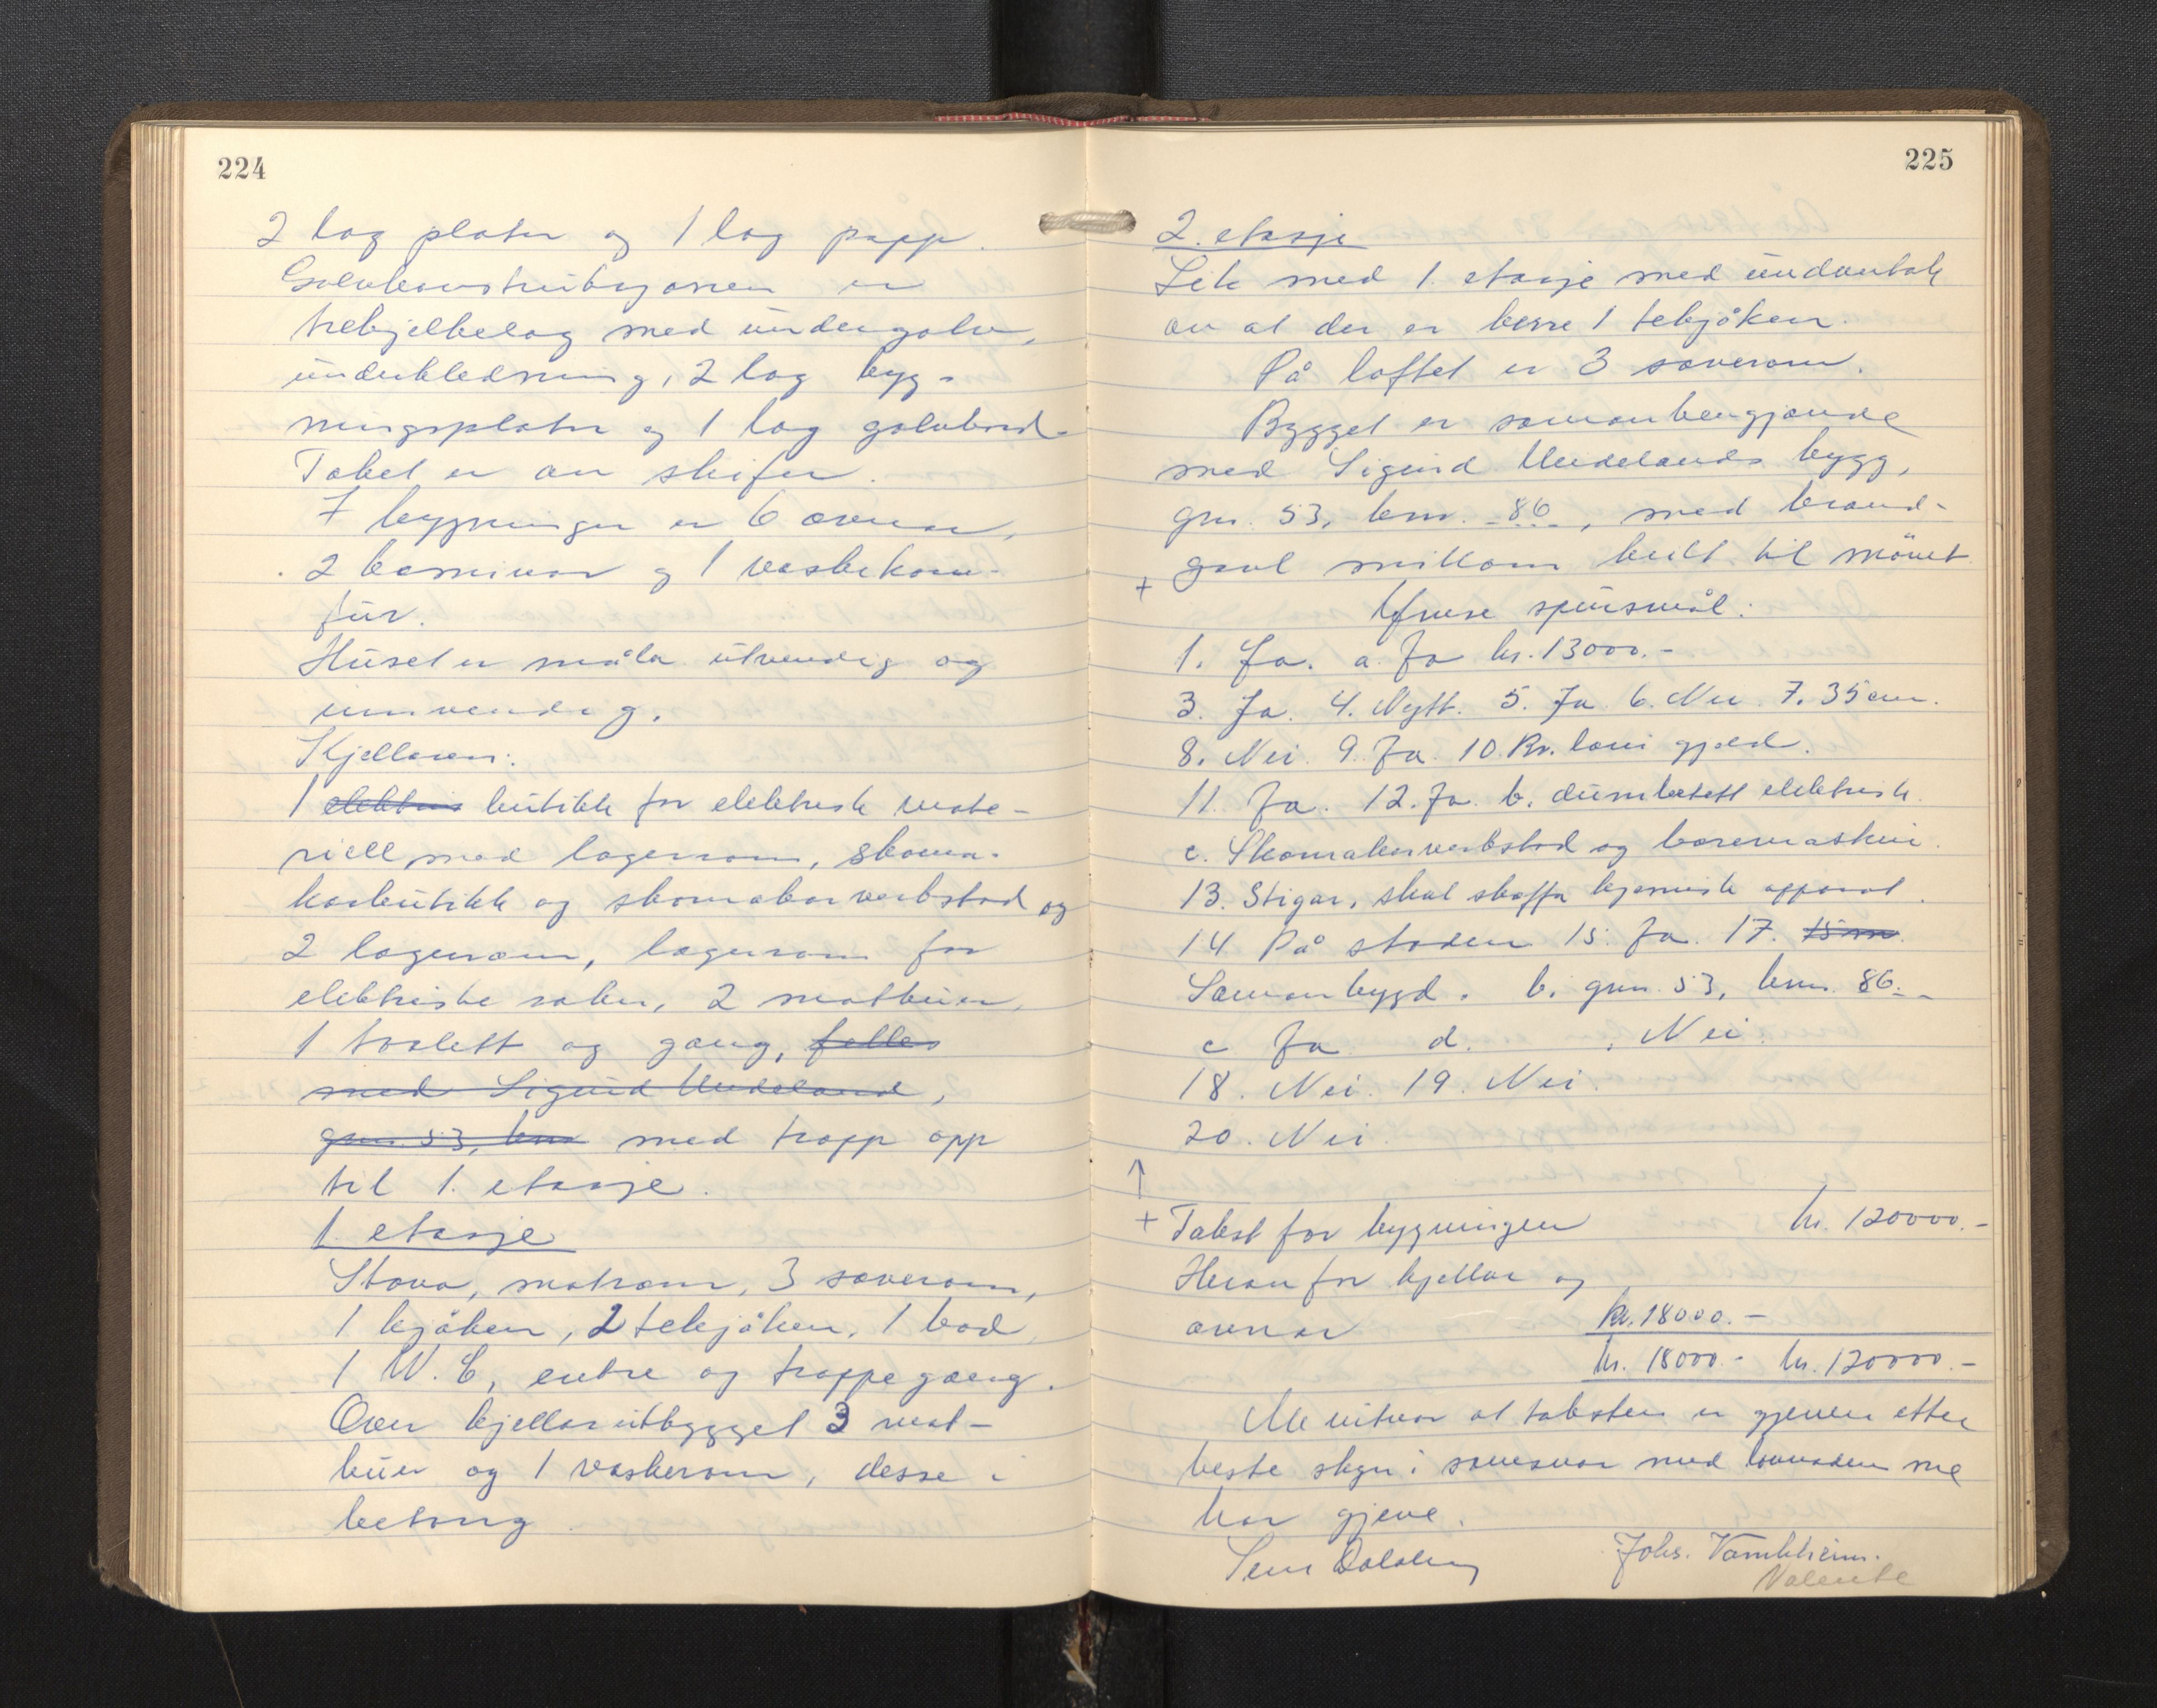 224
2 lag plater og 1 lag papp.
Golvkonstruksjonen er
trebjelkelag med undergolv,
underkledning, 2 lag byg-
ningsplater og 1 lag golvbord.
Taket er av skifer.
I bygningen er 6 omnar,
2 kaminar og 1 vaskekom-
fur.
Huset er måla utvendig og
innvendig.
Kjellaren:
1 elektris butikk for elektrisk mate-
riell med lagerrom, skoma-
karbutikk og skomakarverkstad og
2 lagerrom, lagerrom for
elektriske saker, 2 matbuer,
1 toalett og gang, felles
med Sigurd Undeland,
gnr. 53, bnr med trapp opp
til 1. etasje.
1. etasje
Stova, matrom, 3 soverom,
1 kjøken, 2 tekjøken, 1 bad
1 W.C, entre og trappegang.
Over kjellarutbygget 3 mat-
buer og 1 vaskerom, desse i
betong.
225
2. etasje
Lik med 1. etasje med undantak
av at der er berre 1 tekjøken.
På loftet er 3 soverom.
Bygget er samanhengjande
med Sigurd Undelands bygg,
gnr. 53, bnr. 86, med brand-
gavl millom heilt til mönet
+
Ymse spursmål:
1. Ja. a. Ja kr. 13000.-
3. Ja. 4. Nytt. 5. Ja 6. Nei. 7. 35 cm.
8. Nei. 9. Ja. 10. Kr. gjeld.
11. Ja. 12. Ja. b. elektrisk.
c. Skomakarverkstad og boremaskin.
13. Stigar, skal skaffa kjemisk apparat.
14 På staden 15. Ja. 17. 15 m.
Samanbygd. b. gnr. 53, bnr. 86.
c Ja d. . Nei.
18. Nei. 19. Nei.
20. Nei.
↑
+ Takst for bygningen kr. 120000.-
Herav for kjellar og
omnar kr. 18000.-
kr. 18000.- kr. 120000.-
Me vitnar at taksten er gjeven etter
beste skyn i samsvar med lovnaden me
har gjeve.
Johs.